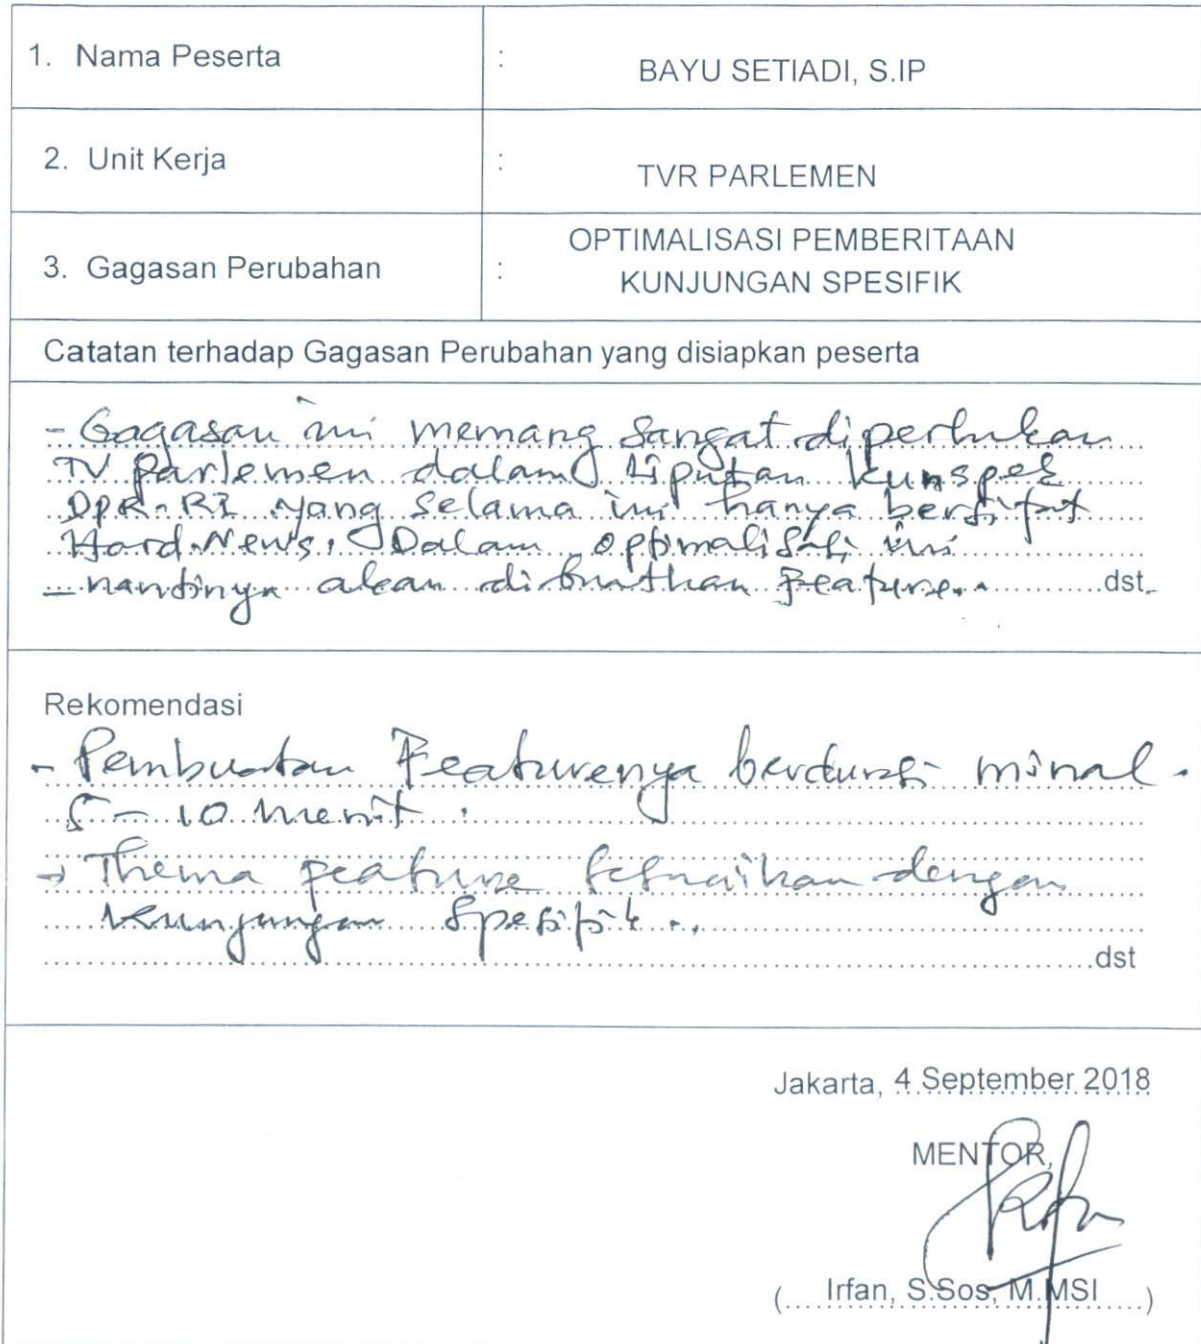 1. Nama Peserta : BAYU SETIADI, S.IP
2. Unit Kerja : TVR PARLEMEN
3. Gagasan Perubahan : OPTIMALISASI PEMBERITAAN
KUNJUNGAN SPESIFIK
Catatan terhadap Gagasan Perubahan yang disiapkan peserta
- Gagasan ini memang sangat diperlukan
TV Parlemen dalam Liputan Kunspek
DPR-RI yang selama ini hanya bersifat
Hard News. Dalam optimalisasi ini
nantinya akan dibuatkan Feature. dst
Rekomendasi
- Pembuatan Featurenya berdurasi minal.
5 - 10 menit.
- Thema feature sesuaikan dengan
Kunjungan Spesifik..
dst
Jakarta, 4 September 2018
MENTOR,
(.... Irfan, S.Sos, M.MSI ....)